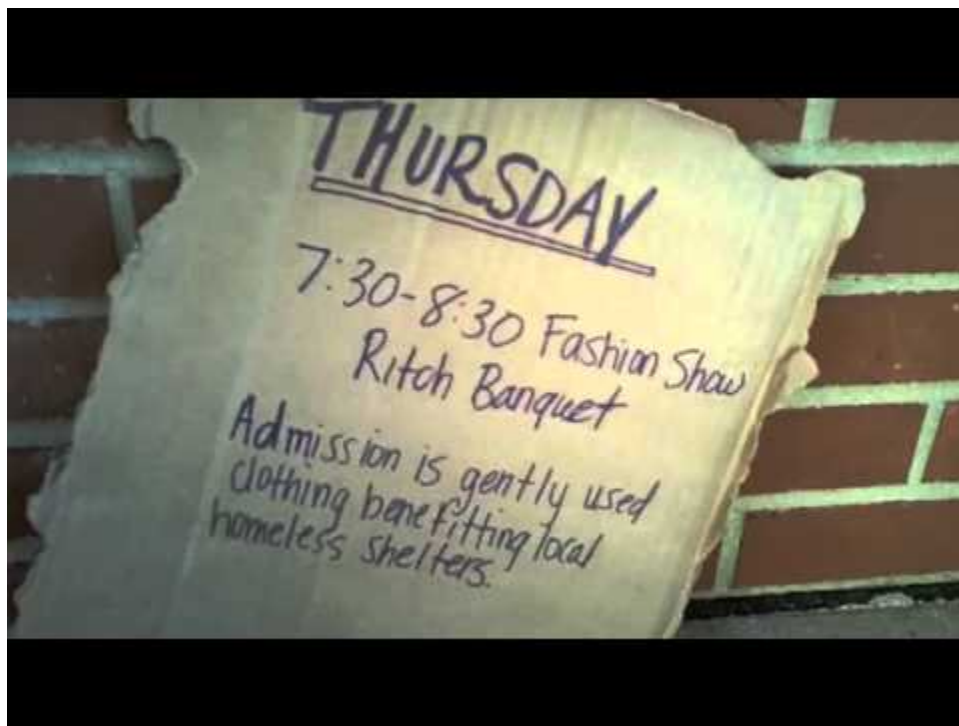 THURSDAY
7:30-8:30 Fashion Show
Ritch Banquet
Admission is gently used
clothing benefitting local
homeless shelters.